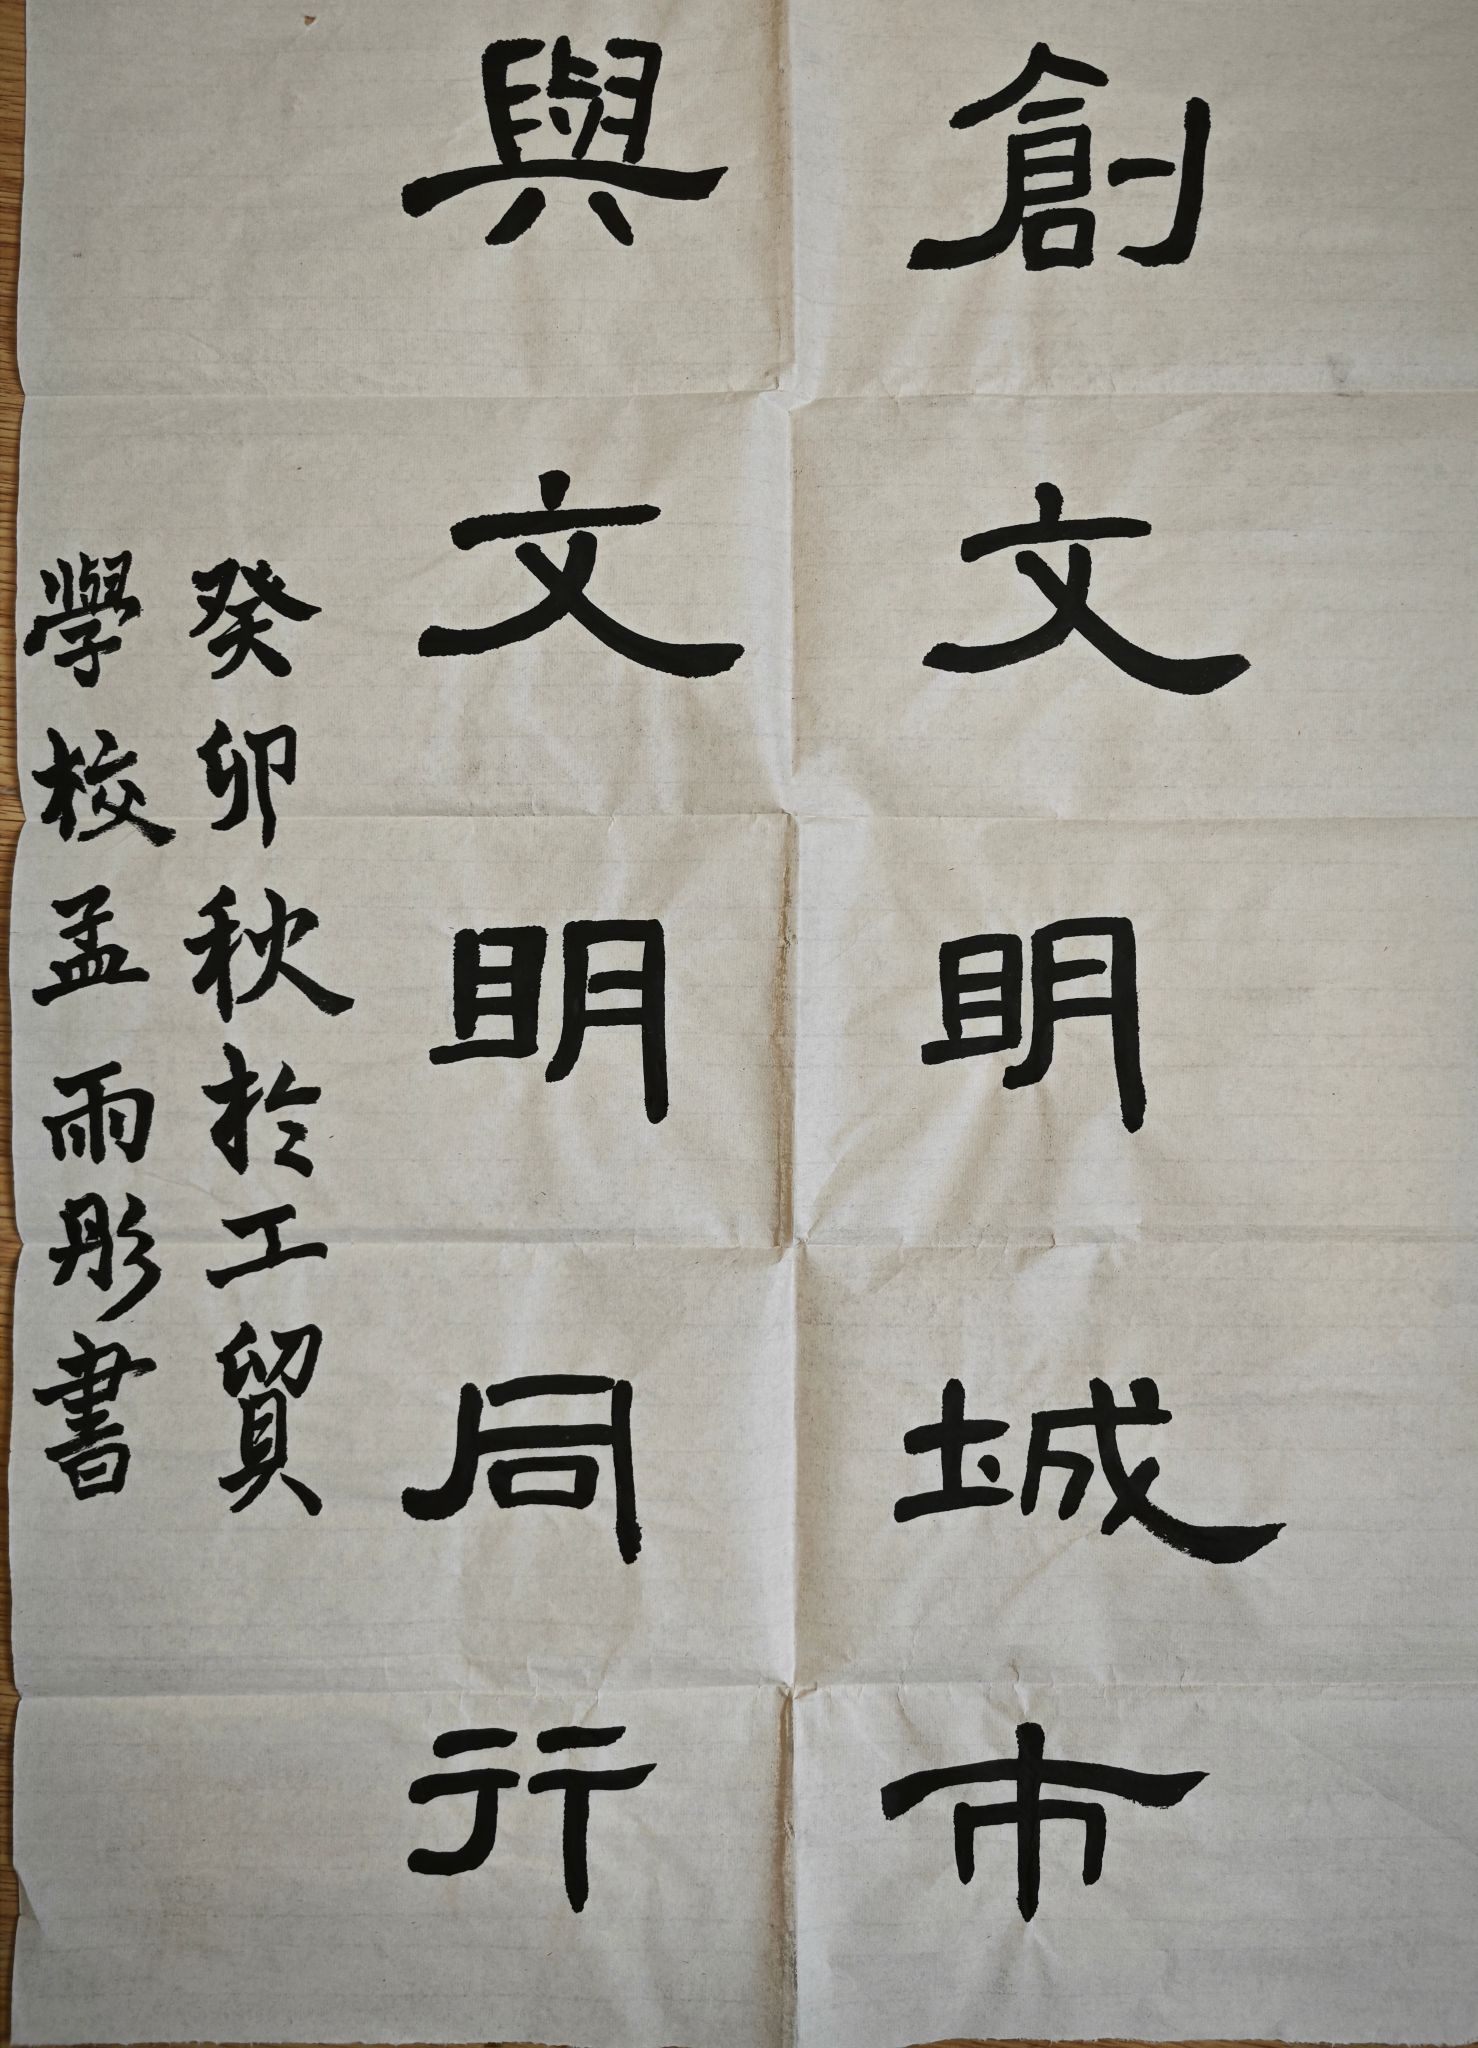 創文明城市
與文明同行
癸卯秋於工貿
學校孟雨彤書